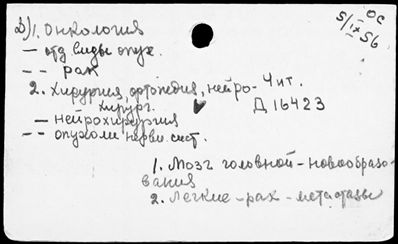 Д) 1. Онкология
ОС
5/IX 56
— отд. виды опух.
-- рак
2. Хирургия, ортопедия, нейро-
хирург.
Чит.
Д 16423
— нейрохирургия
-- опухоли нервн. сист.
1. Мозг головной - новообразо-
вания
2. Легкие - рак - метастазы